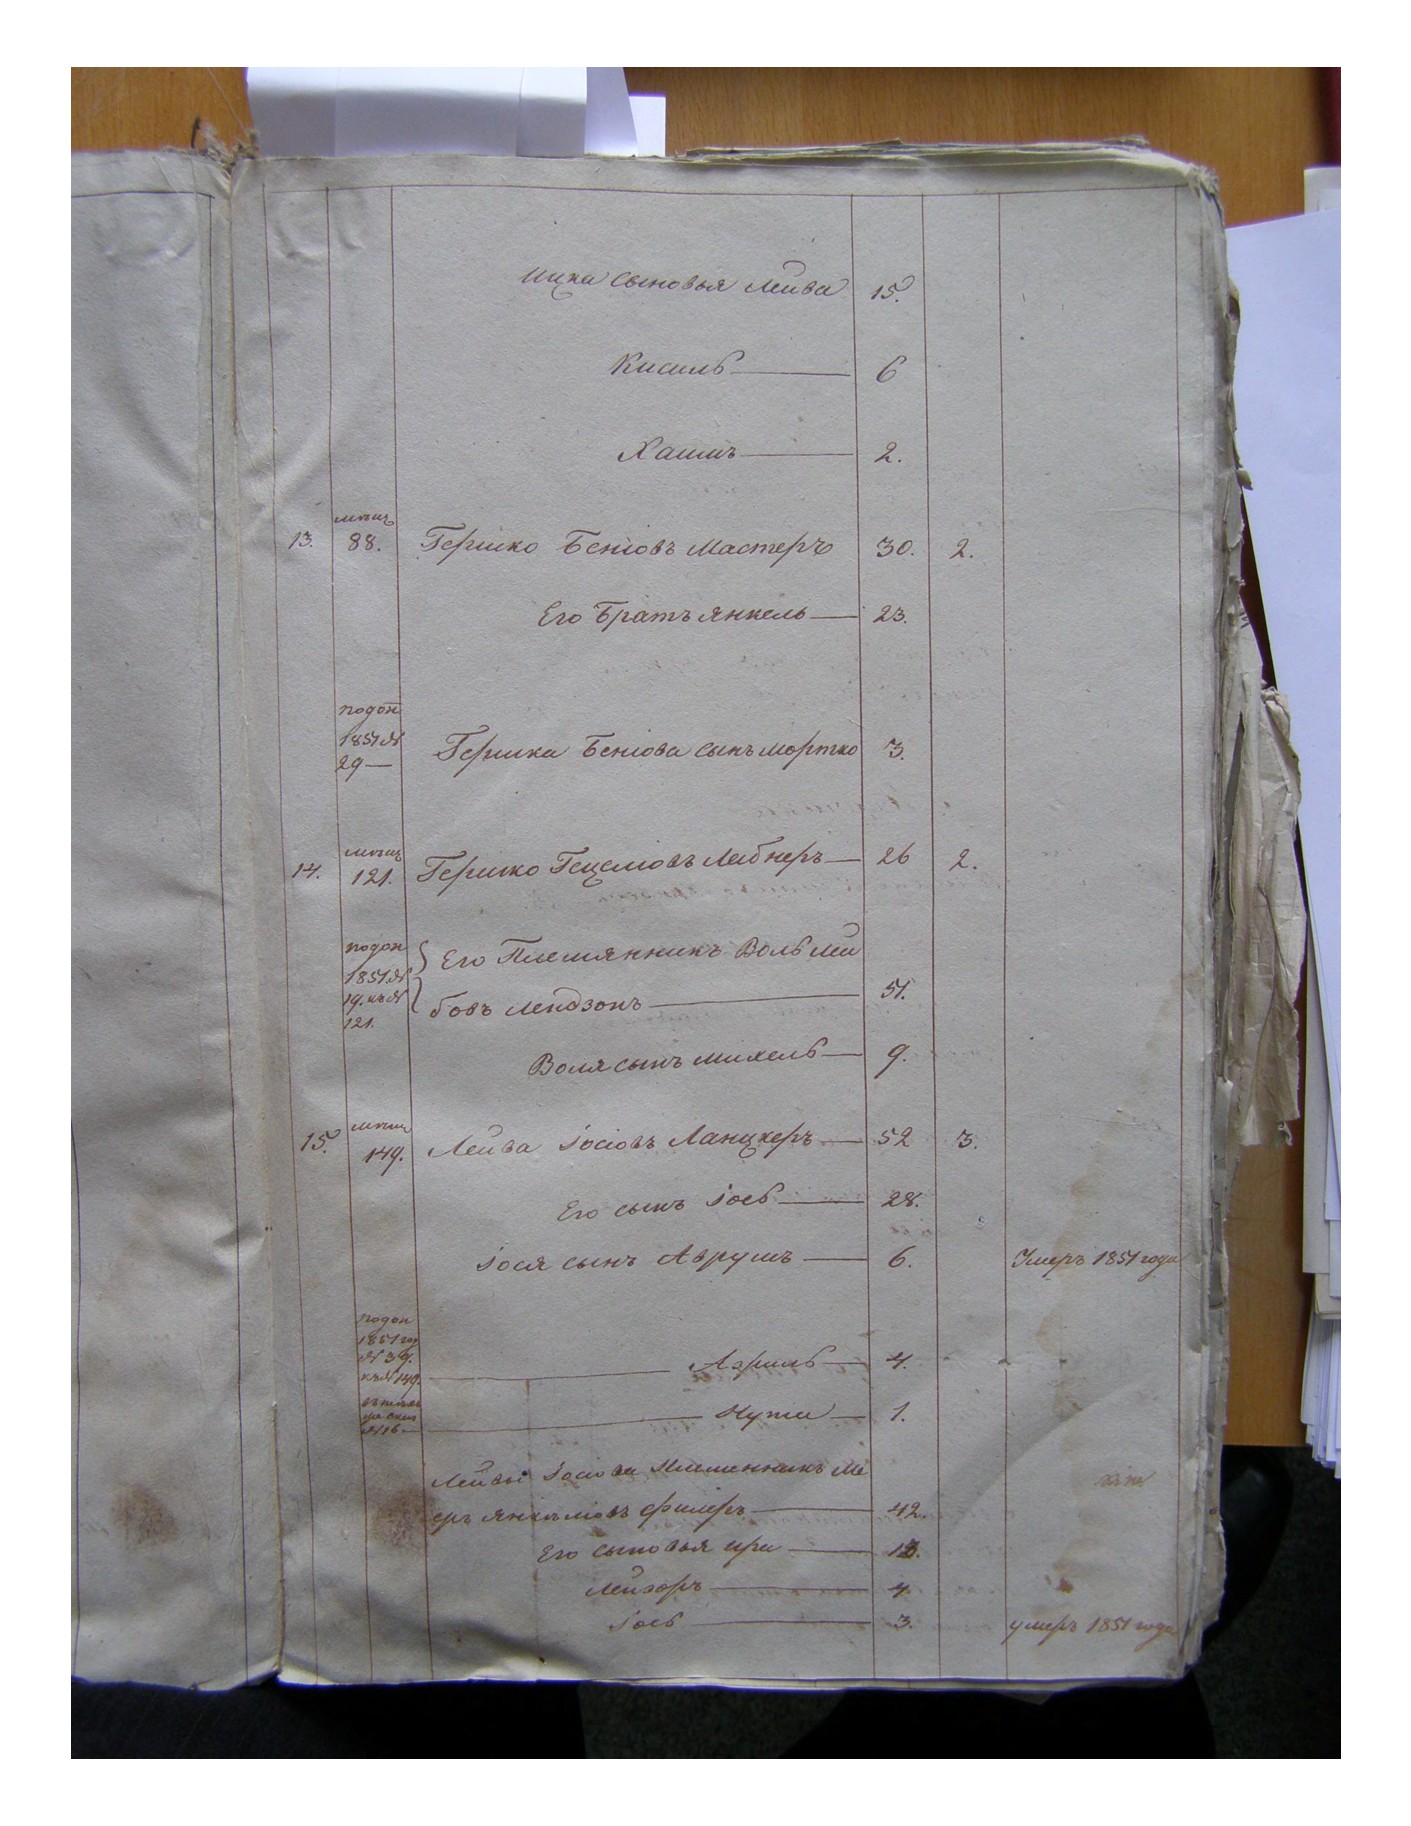 Ицка сыновья Лейва 15.
Кисиль 6
Хаимъ 2.
13. мѣщ 88. Гершко Беніовъ Мастеръ 30. 2.
Его Братъ Янкель 23.
подоп
1851 №
29 Гершка Беніова сынъ Мортко 3.
14. мѣщ 121. Гершко Гецеліовъ Лебнеръ 26 2.
подоп
1851 №
19. къ №
121.
Его Племянникъ Воль Лей
бовъ Лендзонъ 51.
Воля сынъ Михель 9.
15. мѣщ 149. Лейва Іосіовъ Ланцкеръ 52 3.
Его сынъ Іось 28.
Іося сынъ Аврумъ 6. Умеръ 1851 года
подоп
1851 год
№ 39.
къ № 149.
Азриль 4.
№ 16
Нута 1.
Лейвы Іосіова Племенникъ Ме
еръ Янкеліовъ Филеръ 42.
Его сыновья Ира 13.
Лейзоръ 4
Іось 3. умеръ 1851 года